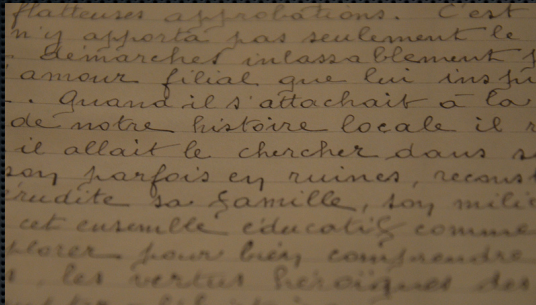 flatteuses approbations. C'est
n'y apporta pas seulement le
démarches inlassablement
amour filial que lui inspi
. Quand il s'attachait à la
de notre histoire locale il r
il allait le chercher dans s
son parfois en ruines, reconst
érudite sa famille, son milie
cet ensemble éducatif comme
plorer pour bien comprendre
les vertus héroïques des